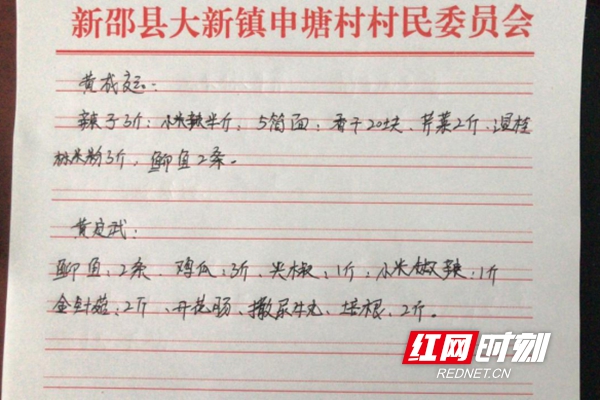 新邵县大新镇申塘村村民委员会
黄成交:
辣子3斤;小米辣半斤,5筒面;香干20块、芹菜2斤、湿桂
林米粉3斤,鲫鱼2条。
黄定武:
鲫鱼;2条、鸡瓜;3斤、尖椒;1斤;小米椒辣;1斤
金针菇;2斤、开花肠、撒尿牛丸、培根、2斤。
红网时刻
REDNET.CN